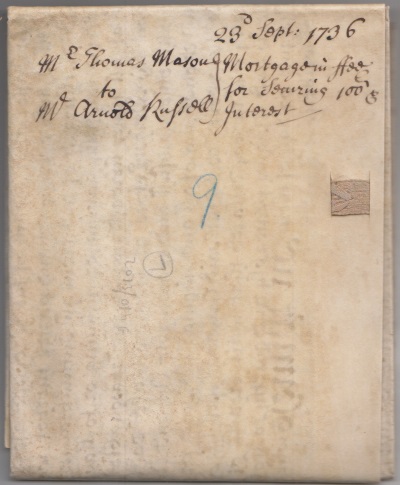 23d Sept: 1736
Mr Thomas Mason
to
Mr Arnold Russell
Mortgage in ffee
for Securing 100£ &
Interest
9
L